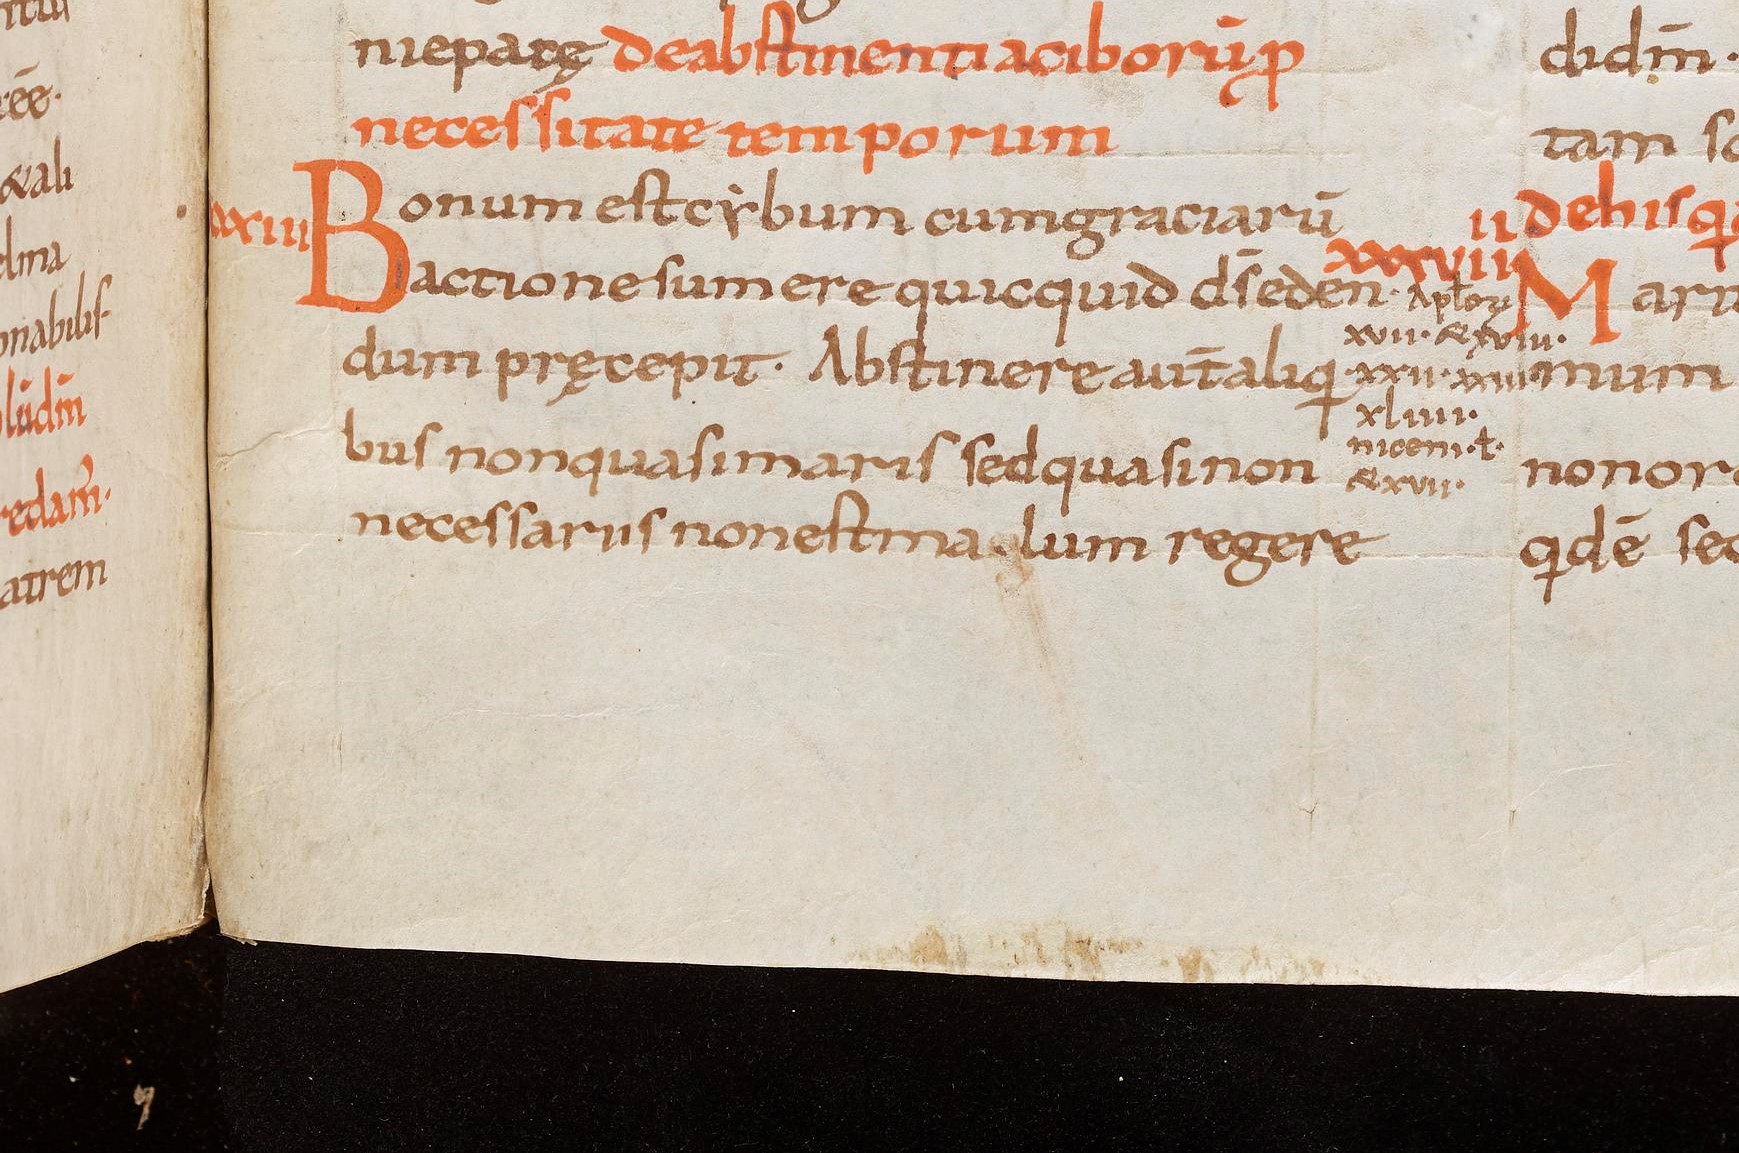 ree·
&ali
elma
onabilis
lūdm̄
redam̄·
atrem
niepatę deabstinentiaciborū p
necessitate temporum
xxxiii Bonum est cybum cumgraciarū
actione sumere quicquid ds̄ eden
dum pręcepit· Abstinere aut̄ aliq
bus nonquasimaris sed quasinon
necessariis nonestma lum regere
Aptor
xvii· & xviii·
xxii· xxiii
xliiii·
niceni· t·
& xvii·
didm̄·
tam
ii dehis q
xxxviii M
mum
nonor
qdē sec